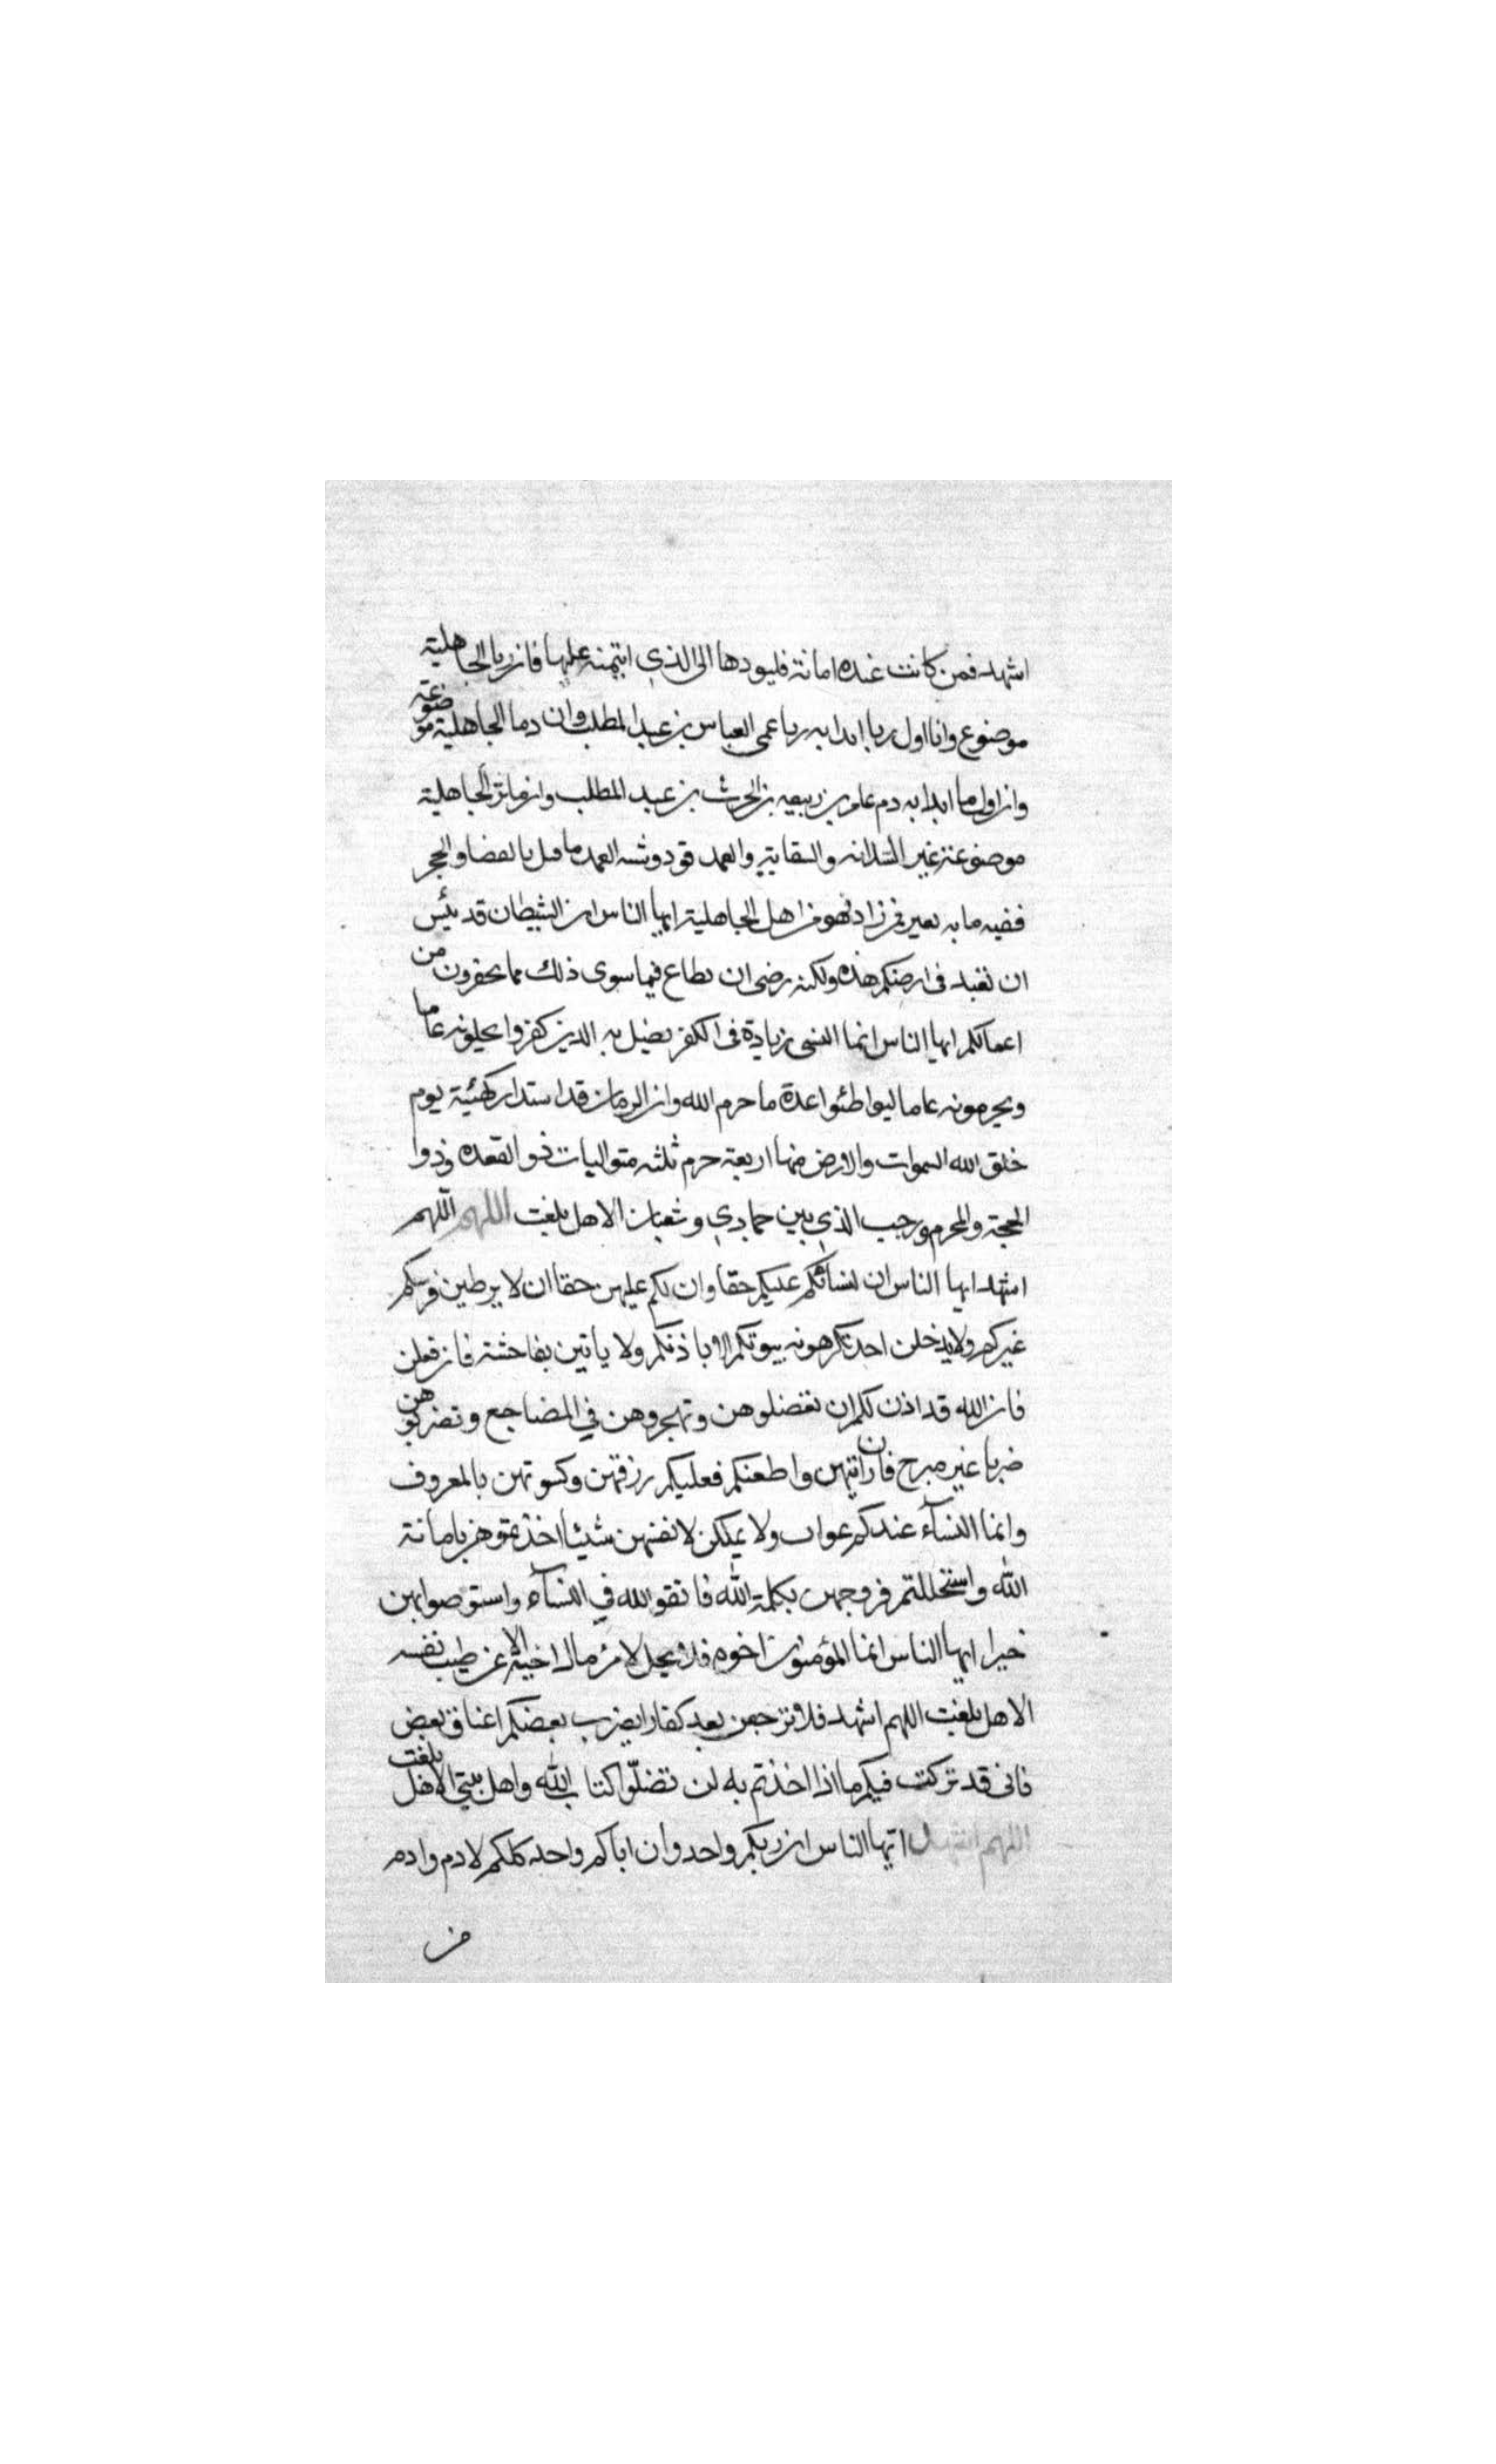 اشهد فمن كانت عنده امانة فليودها الى الذي ايتمنه عليها فان ربا الجاهلية
موضوع وانا اول ربا ابدا به ربا عمى العباس بن عبد المطلب وان دما الجاهلية موضوعة
وان اول ما ابدا به دم عامر بن ربيعه بن الحرث بن عبد المطلب وان ماثر الجاهلية
موضوعة غير السدانه والسقاية والعمد قود وشبه العمد ما قتل بالعصا والحجر
ففيه مايه بعير فمن زاد فهو من اهل الجاهلية ايها الناس ان الشيطان قد يئس
ان تعبد فى ارضكم هذه ولكنه رضى ان يطاع فيما سوى ذلك مما يحقرون من
اعمالكم ايها الناس انما النسى زيادة فى الكفر يضل به الذين كفروا يحلونه عاما
ويحرمونه عاما ليواطئوا عدة ما حرم الله وان الزمان قد استدار كهئية يوم
خلق الله السموات والارض منها اربعة حرم ثلثه متواليات ذو القعده وذوا
الحجة والمحرم ورجب الذي بين جمادي وشعبان الا هل بلغت اللهم اللهم
اشهد ايها الناس ان لنسائكم عليكم حقا وان لكم عليهن حقا ان لا يوطين فرشكم
غيركم ولا يدخلن احد تكرهونه بيوتكم الا باذنكم ولا ياتين بفاحشة فان فعلن
فان الله قد اذن لكم ان تعضلوهن وتهجروهن في المضاجع وتضربوهن
ضربا غير مبرح فان انتهين واطعنكم فعليكم رزقهن وكسوتهن بالمعروف
وانما النسآء عندكم عوان ولا يملكن لانفسهن شيئا اخذتموهن بامانة
الله واستحللتم فروجهن بكلمة الله فاتقو الله في النسآء واستوصوا بهن
خيرا ايها الناس انما المؤمنون اخوه فلا يحل لامرئ مال اخيه الا عن طيب نفسه
الا هل بلغت اللهم اشهد فلا ترجعن بعد كفارا يضرب بعضكم اعناق بعض
فانى قد تركت فيكم ما اذا اخذتم به لن تضلّوا كتاب الله واهل بيتي الا هل بلغت
اللهم اشهد ايها الناس ان ربكم واحد وان اباكم واحد كلكم لادم وادم
من